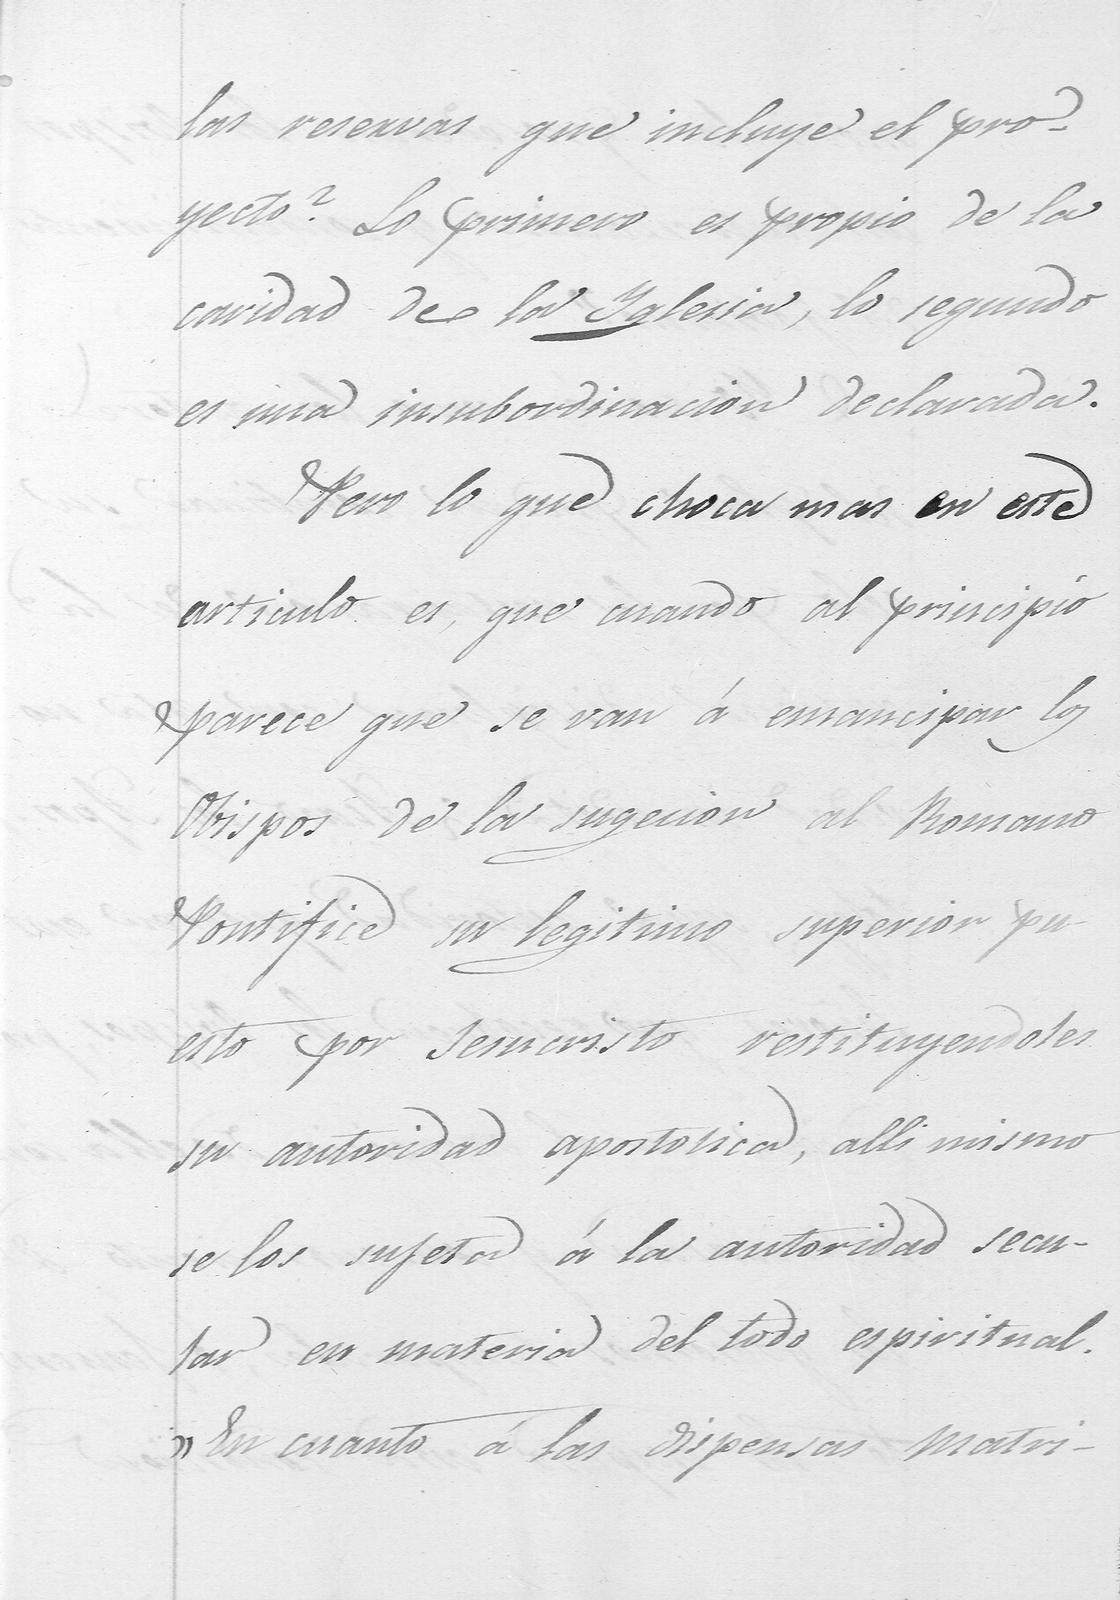 las reservas que incluye el pro-
yecto? Lo primero es propio de la
caridad de la Yglesia, lo segundo
es una insubordinacion declarada.
Pero lo que choca mas en este
articulo es, que cuando al principio
parece que se van á emancipar los
Obispos de la sugecion al Romano
Pontifice su legitimo superior pu-
esto por Jesucristo restituyendoles
su autoridad apostolica, alli mismo
se los sujeta á la autoridad secu-
lar en materia del todo espiritual.
"En cuanto á las dispensas matri-